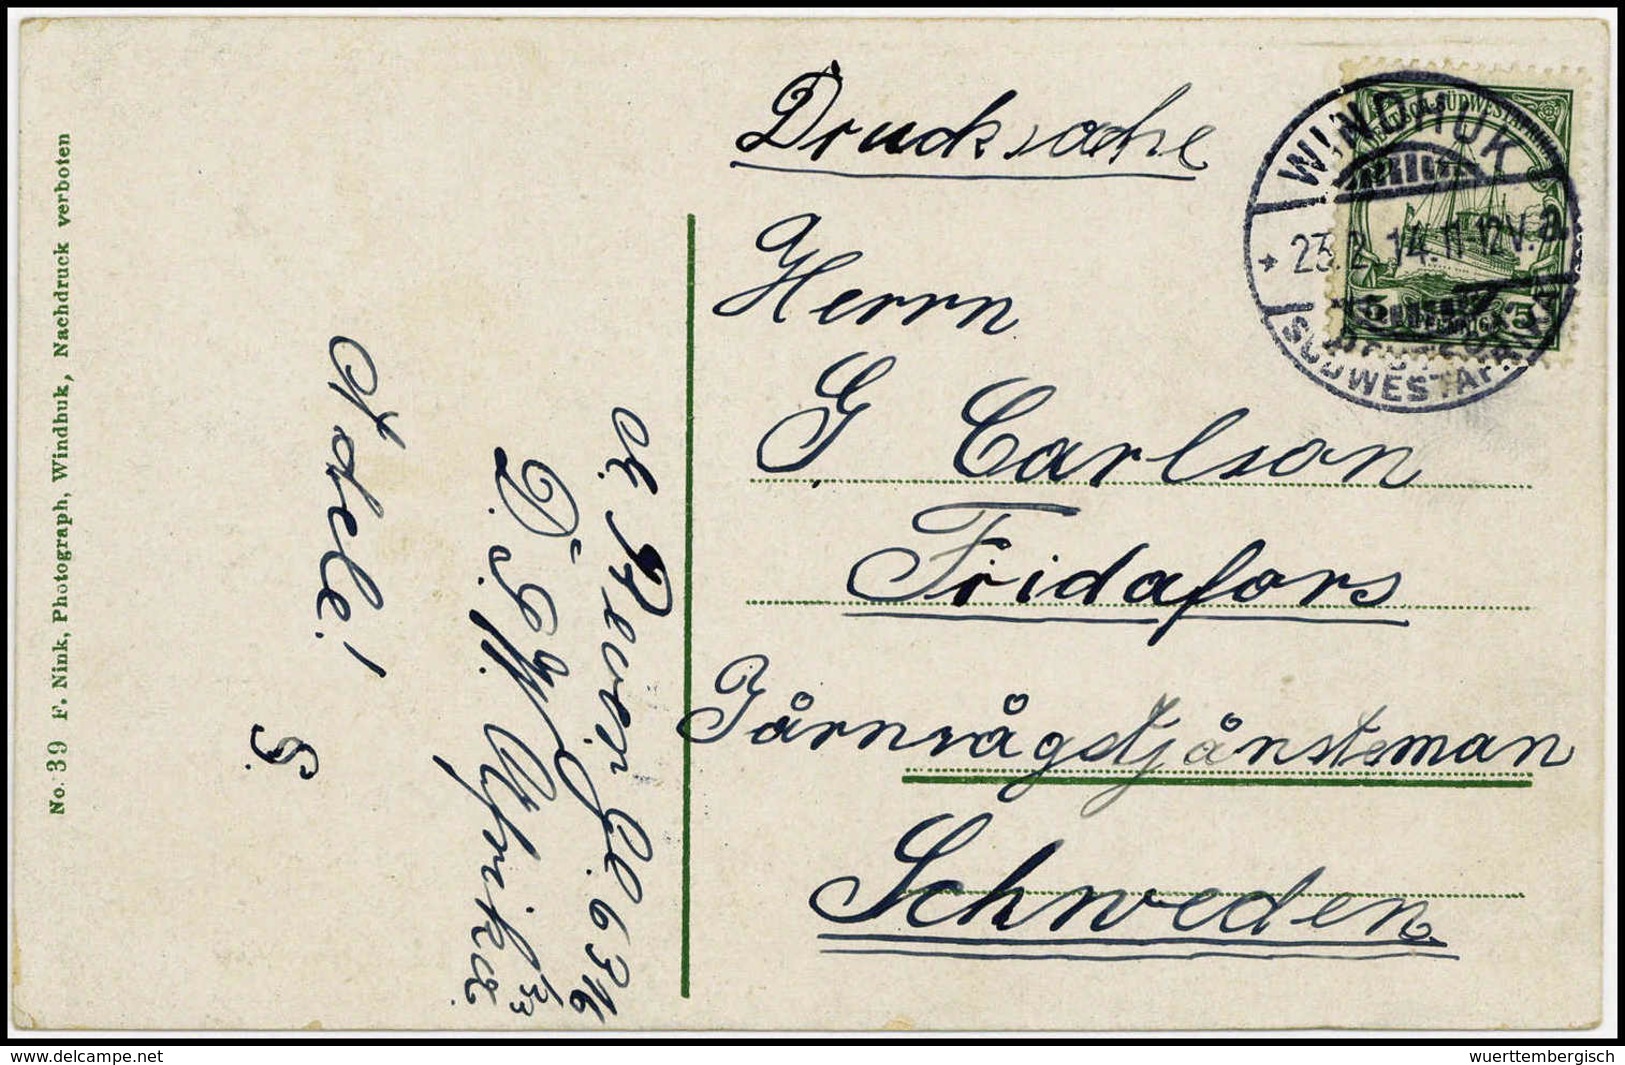 Drucksache
Herrn
G Carlson
Fridafors
Järnvägstjänsteman
Schweden
WINDHUK
23.2.14.11-12V. a
SÜDWESTAFRIKA
DEUTSCH-SÜDWESTAFRIKA
5 PFENNIG 5
6316
D. S. W. Afrika
13/2
Adele!
S.
No. 39 F. Nink, Photograph, Windhuk, Nachdruck verboten
delcampe.net
wuerttembergisch